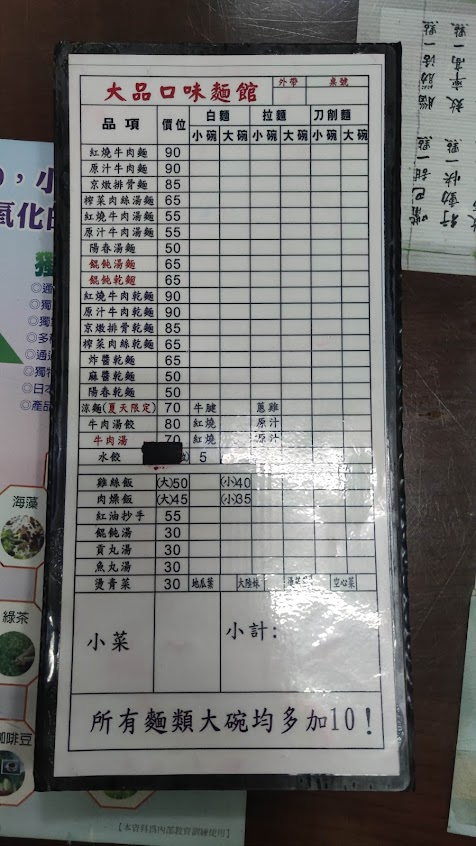 大品口味麵館 外帶 桌號
品項 價位 白麵 拉麵 刀削麵
小碗 大碗 小碗 大碗 小碗 大碗
紅燒牛肉麵 90
原汁牛肉麵 90
京燉排骨麵 85
榨菜肉絲湯麵 65
紅燒牛肉湯麵 55
原汁牛肉湯麵 55
陽春湯麵 50
餛飩湯麵 65
餛飩乾麵 65
紅燒牛肉乾麵 90
原汁牛肉乾麵 90
京燉排骨乾麵 85
榨菜肉絲乾麵 65
炸醬乾麵 65
麻醬乾麵 50
陽春乾麵 50
涼麵(夏天限定) 70 牛腱 蔥雞
牛肉湯餃 80 紅燒 原汁
牛肉湯 70 紅燒 原汁
水餃 5
雞絲飯 (大)50 (小)40
肉燥飯 (大)45 (小)35
紅油抄手 55
餛飩湯 30
貢丸湯 30
魚丸湯 30
燙青菜 30 地瓜葉 大陸妹 空心菜
小菜 小計:
所有麵類大碗均多加10!
氧化
海藻
綠茶
咖啡豆
【本資料為內部教育訓練使用】
嘴巴甜一點
行動快一點
效率高一點
腦筋活一點